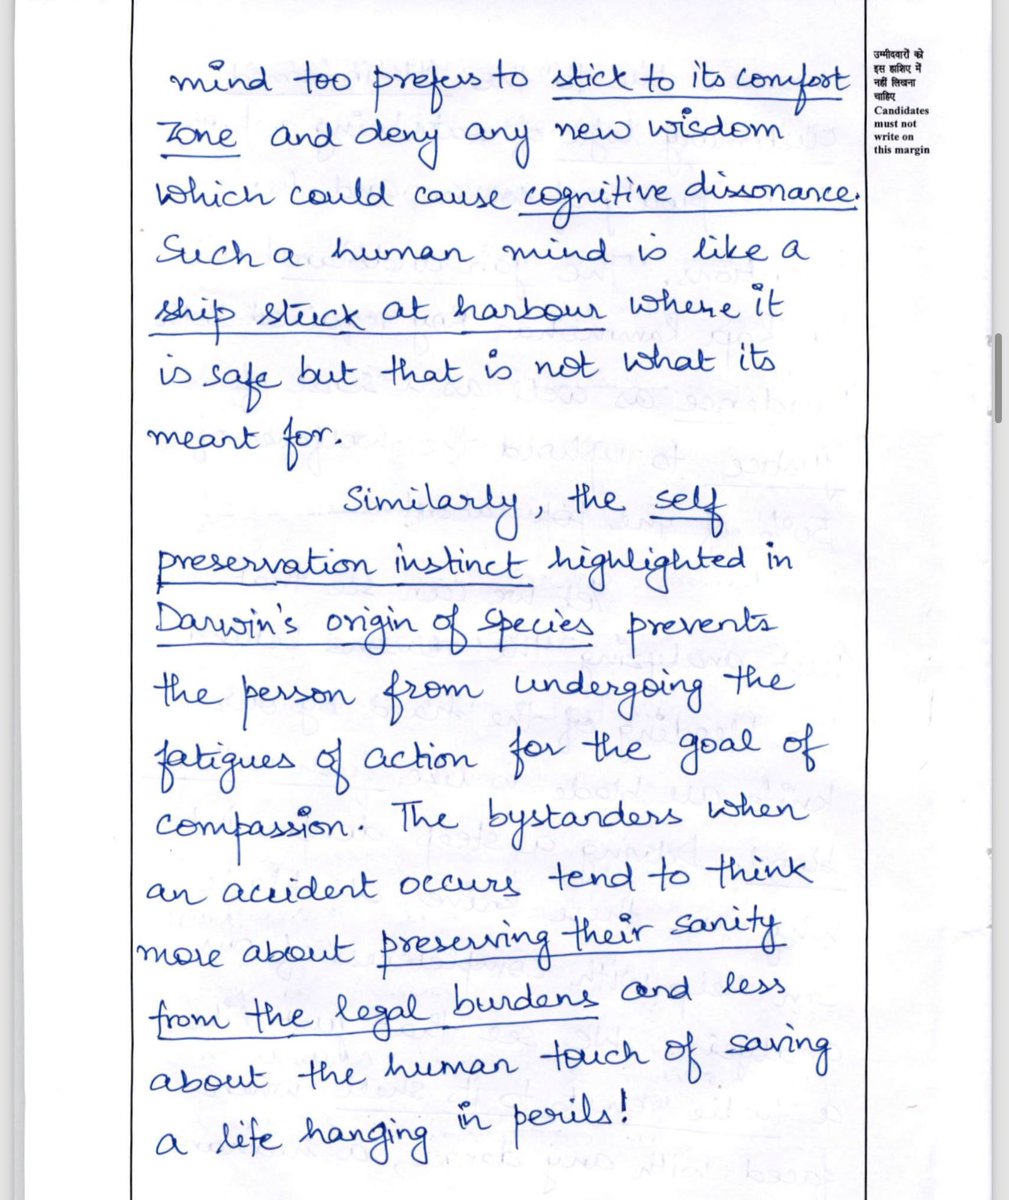 mind too prefers to stick to its comfort
zone and deny any new wisdom
which could cause cognitive dissonance.
Such a human mind is like a
ship stuck at harbour where it
is safe but that is not what its
meant for.
Similarly, the self
preservation instinct highlighted in
Darwin's origin of species prevents
the person from undergoing the
fatigues of action for the goal of
compassion. The bystanders when
an accident occurs tend to think
more about preserving their sanity
from the legal burdens and less
about the human touch of saving
a life hanging in perils!
उम्मीदवारों को
इस हाशिए में
नहीं लिखना
चाहिए
Candidates
must not
write on
this margin